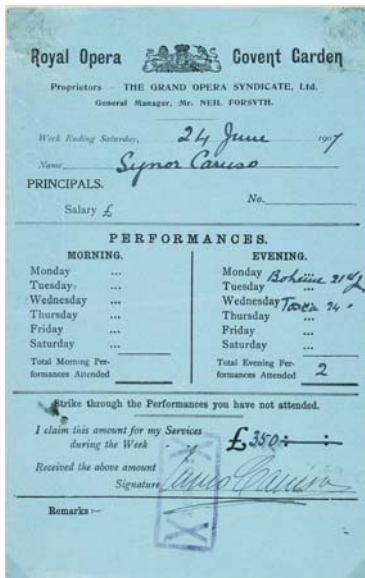 Royal Opera Covent Garden
Proprietors - THE GRAND OPERA SYNDICATE, Ltd.
General Manager, Mr. NEIL FORSYTH.
Week Ending Saturday, 24 June 1907
Name Synor Caruso
PRINCIPALS.
No.
Salary £
PERFORMANCES.
MORNING.
Monday ...
Tuesday ...
Wednesday ...
Thursday ...
Friday ...
Saturday ...
Total Morning Per-
formances Attended
EVENING.
Monday Bohème 21st
Tuesday ...
Wednesday Tosca 24
Thursday ...
Friday ...
Saturday ...
Total Evening Per-
formances Attended 2
Strike through the Performances you have not attended.
I claim this amount for my Services
during the Week £350
Received the above amount
Signature Enrico Caruso
Remarks :-